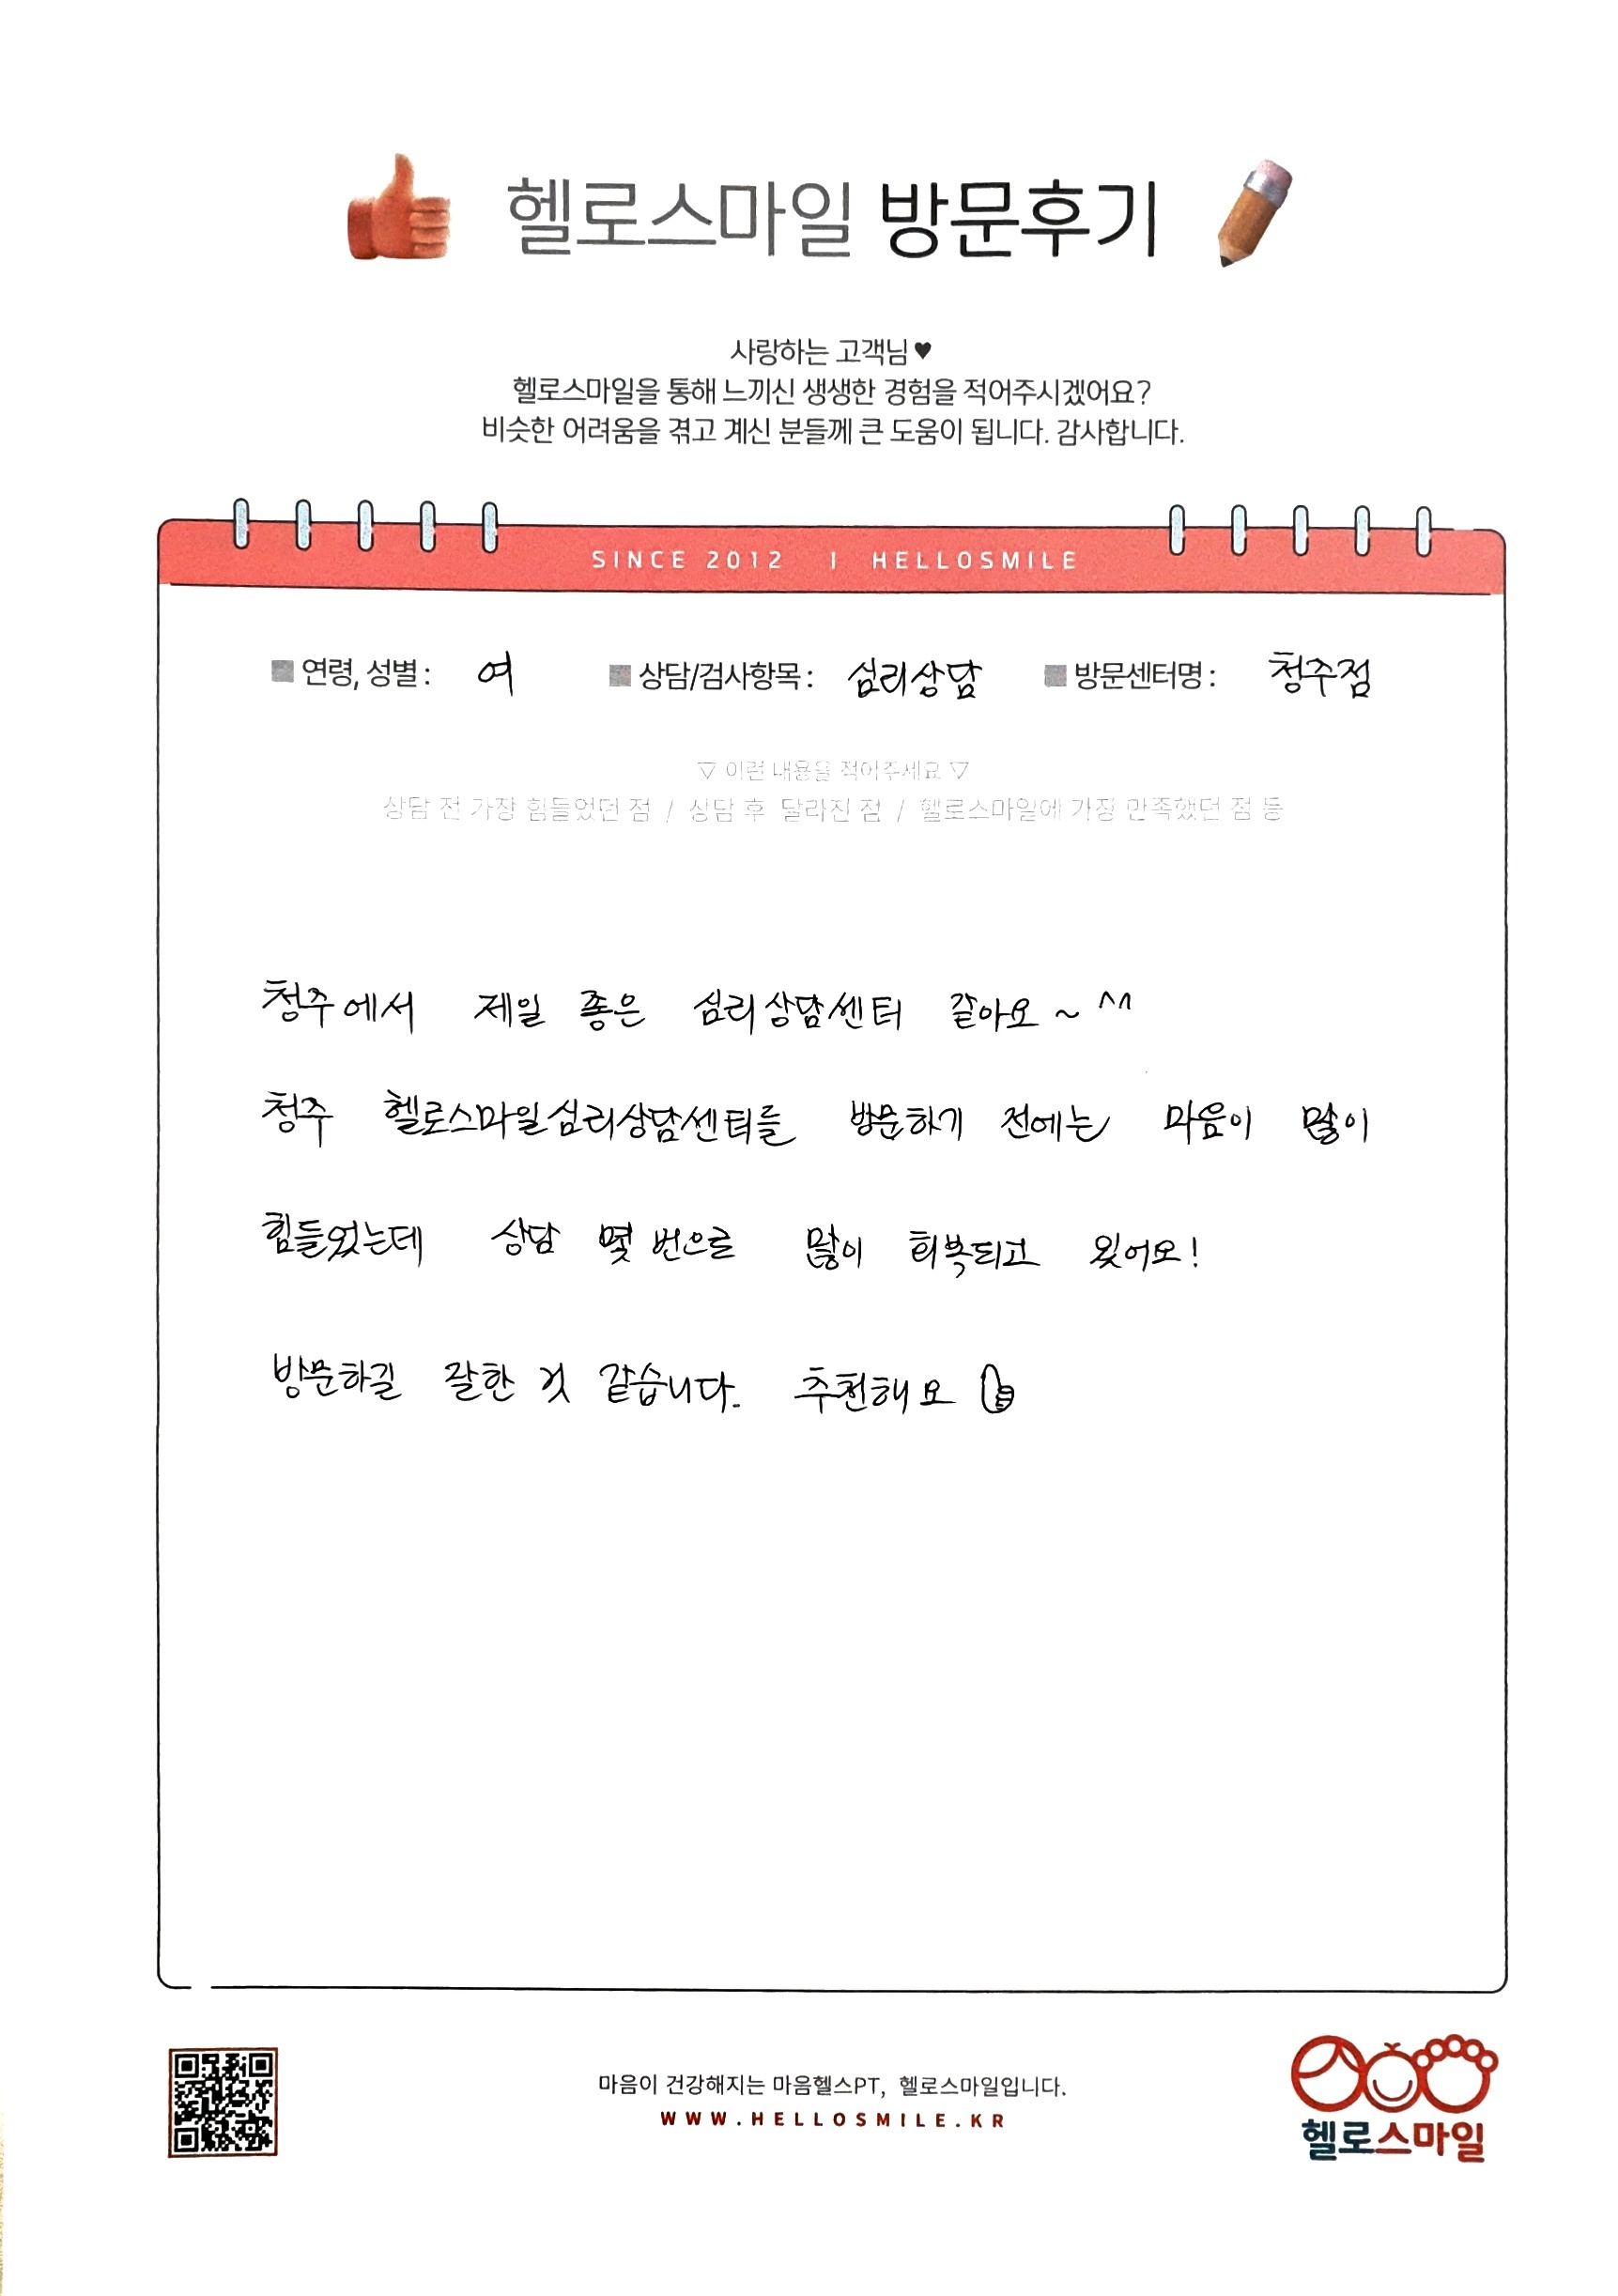 헬로스마일 방문후기
사랑하는 고객님♥
헬로스마일을 통해 느끼신 생생한 경험을 적어주시겠어요?
비슷한 어려움을 겪고 계신 분들께 큰 도움이 됩니다. 감사합니다.
SINCE 2012 | HELLOSMILE
연령, 성별 : 여 상담/검사항목 : 심리상담 방문센터명 : 청주점
▽ 이런 내용을 적어주세요 ▽
상담 전 가장 힘들었던 점 / 상담 후 달라진 점 / 헬로스마일에 가장 만족했던 점 등
청주에서 제일 좋은 심리상담센터 같아요~ ^^
청주 헬로스마일심리상담센터를 방문하기 전에는 마음이 많이
힘들었는데 상담 몇 번으로 많이 회복되고 있어요!
방문하길 잘한 것 같습니다. 추천해요 👍
마음이 건강해지는 마음헬스PT, 헬로스마일입니다.
WWW.HELLOSMILE.KR
헬로스마일